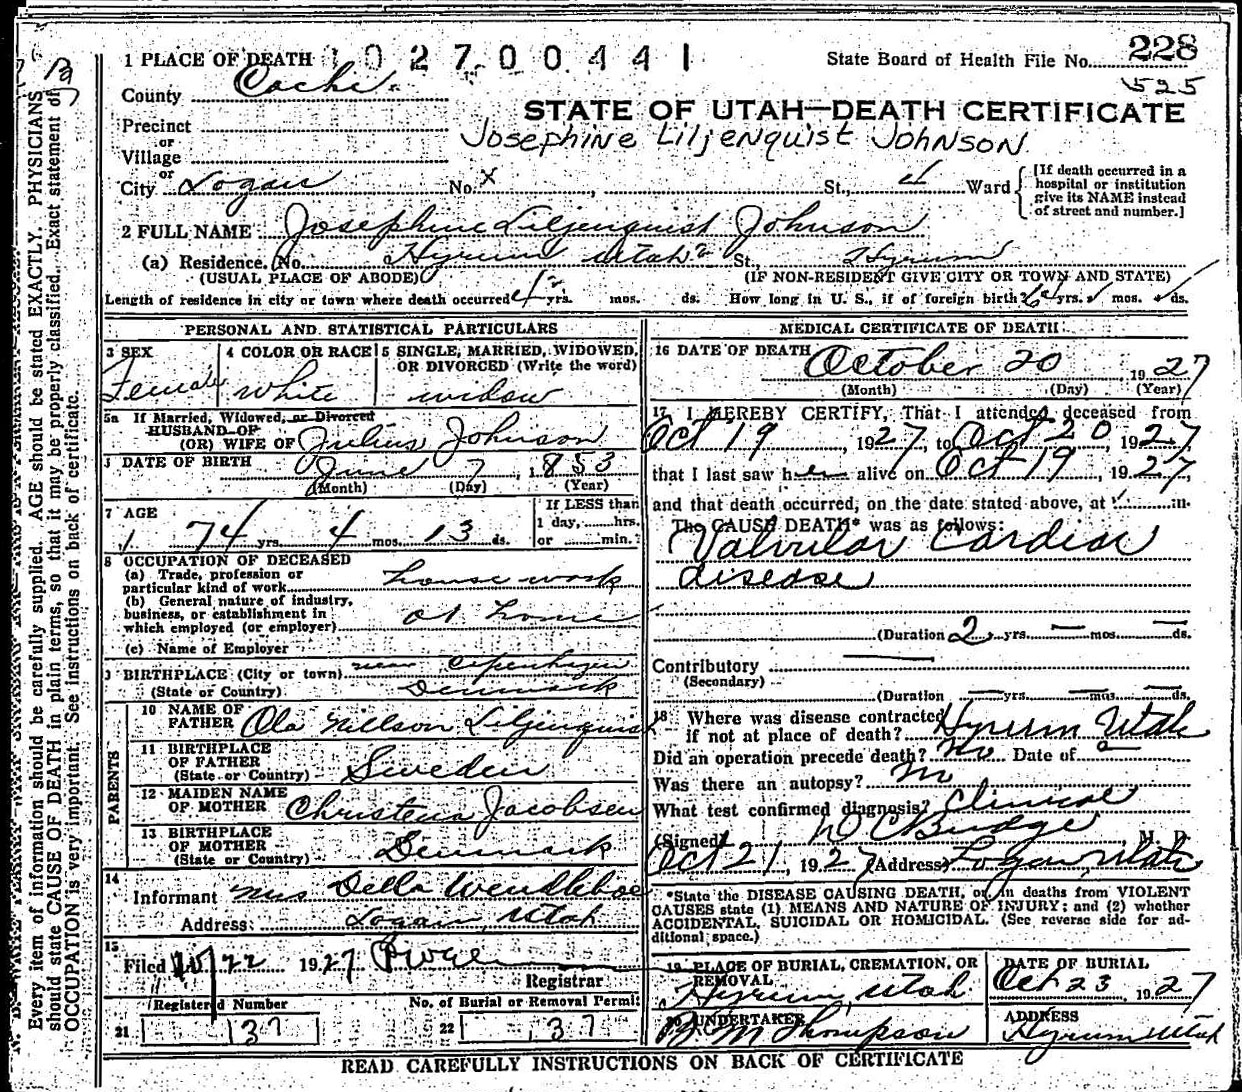 1 PLACE OF DEATH 1 0 2 7 0 0 4 4 1
State Board of Health File No. 228
525
County Cache
STATE OF UTAH—DEATH CERTIFICATE
Precinct
or
Josephine Liljenquist Johnson
Village
or
City Logan No. X , St., 4 Ward
[If death occurred in a hospital or institution give its NAME instead of street and number.]
2 FULL NAME Josephine Liljenquist Johnson
(a) Residence. (No. Hyrum Utah St., Hyrum
(USUAL PLACE OF ABODE) (IF NON-RESIDENT GIVE CITY OR TOWN AND STATE)
Length of residence in city or town where death occurred yrs. mos. ds. How long in U. S., if of foreign birth? 64 yrs. mos. ds.
PERSONAL AND STATISTICAL PARTICULARS
3 SEX
Female
4 COLOR OR RACE
White
5 SINGLE, MARRIED, WIDOWED, OR DIVORCED (Write the word)
widow
5a If Married, Widowed, or Divorced
HUSBAND OF
(OR) WIFE OF Julius Johnson
DATE OF BIRTH June 7, 1853
(Month) (Day) (Year)
7 AGE
74 yrs. 4 mos. 13 ds.
If LESS than
1 day, hrs.
or min.?
8 OCCUPATION OF DECEASED
(a) Trade, profession or
particular kind of work house work
(b) General nature of industry,
business, or establishment in
which employed (or employer) at home
(c) Name of Employer
9 BIRTHPLACE (City or town) near Copenhagen
(State or Country) Denmark
PARENTS
10 NAME OF
FATHER Ola Nillson Liljenquist
11 BIRTHPLACE
OF FATHER
(State or Country) Sweden
12 MAIDEN NAME
OF MOTHER Christena Jacobsen
13 BIRTHPLACE
OF MOTHER
(State or Country) Denmark
14
Informant Mrs Della Wendleboe
Address Logan, Utah
15
Filed 10/22 1927
Registrar
Registered Number
21 37
No. of Burial or Removal Permit
22 37
MEDICAL CERTIFICATE OF DEATH
16 DATE OF DEATH October 20, 1927
(Month) (Day) (Year)
17 I HEREBY CERTIFY, That I attended deceased from
Oct 19, 1927, to Oct 20, 1927
that I last saw her alive on Oct 19, 1927
and that death occurred, on the date stated above, at m.
The CAUSE DEATH* was as follows:
Valvular Cardiac
disease
(Duration 2 yrs. — mos. — ds.
Contributory
(Secondary)
(Duration — yrs. — mos. — ds.
18 Where was disease contracted
if not at place of death? Hyrum Utah
Did an operation precede death? No Date of
Was there an autopsy? no
What test confirmed diagnosis? Clinical
(Signed) D C Budge M. D.
Oct 21, 1927 (Address) Logan, Utah
*State the DISEASE CAUSING DEATH, or in deaths from VIOLENT
CAUSES state (1) MEANS AND NATURE OF INJURY; and (2) whether
ACCIDENTAL, SUICIDAL OR HOMICIDAL. (See reverse side for additional space.)
19 PLACE OF BURIAL, CREMATION, OR
REMOVAL
Hyrum, Utah
DATE OF BURIAL
Oct 23, 1927
20 UNDERTAKER
Thompson
ADDRESS
Hyrum Utah
READ CAREFULLY INSTRUCTIONS ON BACK OF CERTIFICATE
Every item of information should be carefully supplied. AGE should be stated EXACTLY. PHYSICIANS
should state CAUSE OF DEATH in plain terms, so that it may be properly classified. Exact statement of
OCCUPATION is very important. See instructions on back of certificate.